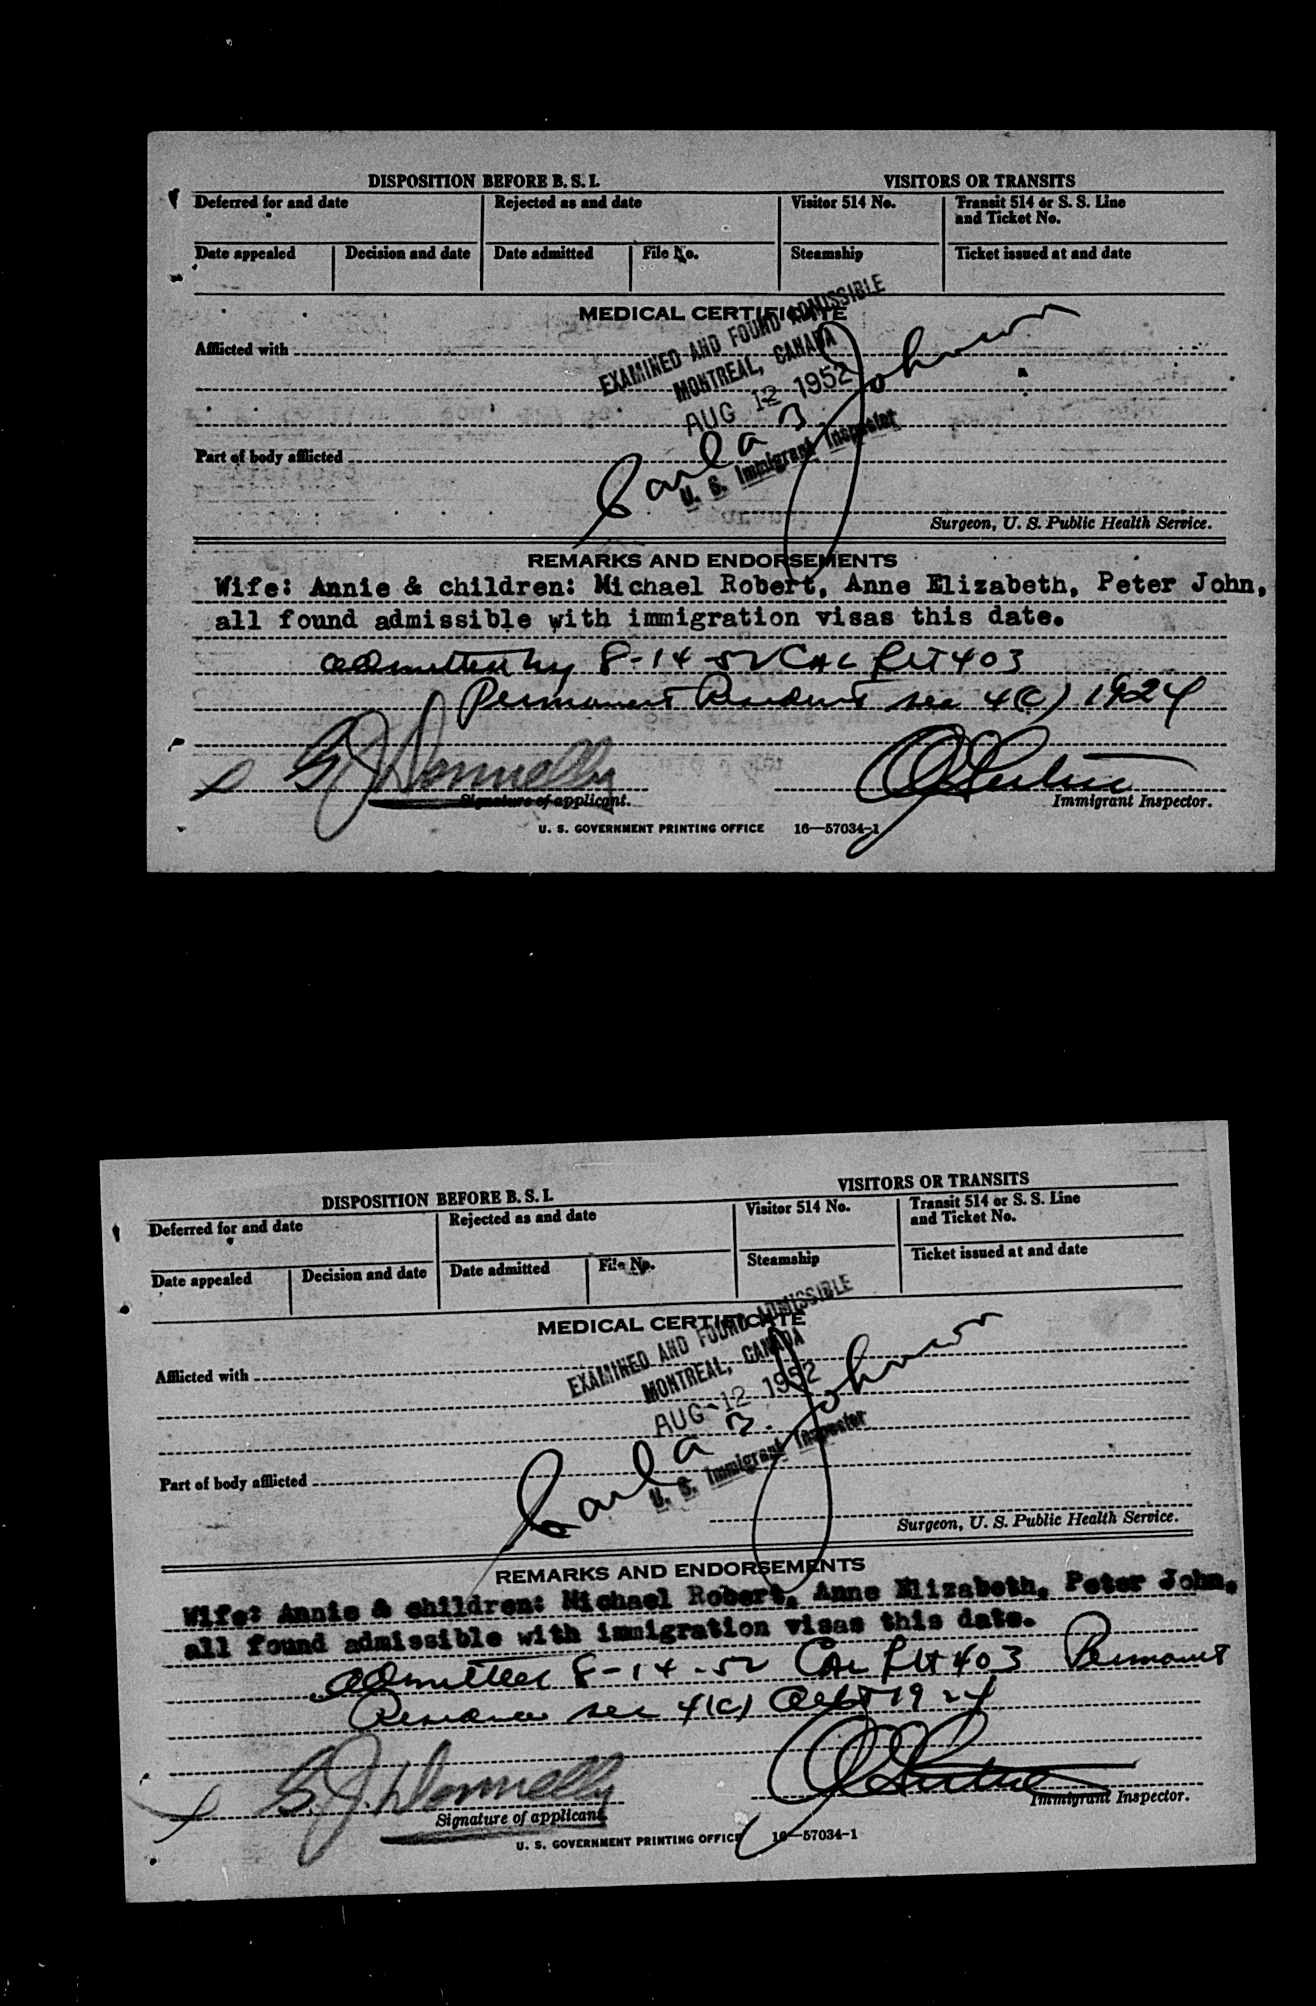 DISPOSITION BEFORE B. S. I.
VISITORS OR TRANSITS
Deferred for and date
Rejected as and date
Visitor 514 No.
Transit 514 or S. S. Line
and Ticket No.
Date appealed
Decision and date
Date admitted
File No.
Steamship
Ticket issued at and date
MEDICAL CERTIFICATE
EXAMINED AND FOUND ADMISSIBLE
MONTREAL, CANADA
AUG 12 1952
Johnson
U. S. Immigrant Inspector
Afflicted with
Part of body afflicted
Surgeon, U. S. Public Health Service.
REMARKS AND ENDORSEMENTS
Wife: Annie & children: Michael Robert, Anne Elizabeth, Peter John,
all found admissible with immigration visas this date.
admitted ny 8-14-52 CAL flt 403
Permanent Resident sec 4(c) 1924
G. J. Donnelly
Signature of applicant.
Immigrant Inspector.
U. S. GOVERNMENT PRINTING OFFICE 16—57034-1
DISPOSITION BEFORE B. S. I.
VISITORS OR TRANSITS
Deferred for and date
Rejected as and date
Visitor 514 No.
Transit 514 or S. S. Line
and Ticket No.
Date appealed
Decision and date
Date admitted
File No.
Steamship
Ticket issued at and date
MEDICAL CERTIFICATE
EXAMINED AND FOUND ADMISSIBLE
MONTREAL, CANADA
AUG 12 1952
Johnson
U. S. Immigrant Inspector
Afflicted with
Part of body afflicted
Surgeon, U. S. Public Health Service.
REMARKS AND ENDORSEMENTS
Wife: Annie & children: Michael Robert, Anne Elizabeth, Peter John,
all found admissible with immigration visas this date.
admitted 8-14-52 CAL flt 403 Permanent
Residence sec 4(c) 1924
G. J. Donnelly
Signature of applicant
Immigrant Inspector.
U. S. GOVERNMENT PRINTING OFFICE 16—57034-1